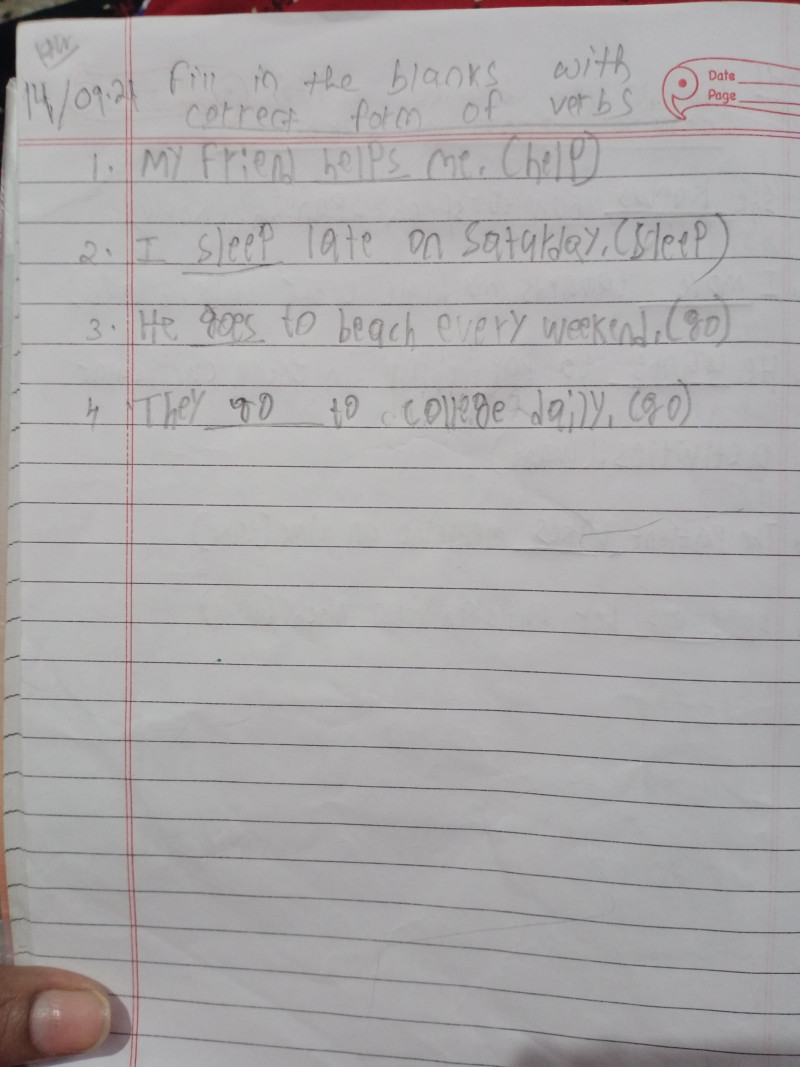 HW
14/09.21 Fill in the blanks with
correct form of verbs
Date
Page
1. My friend helps me. (help)
2. I sleep late on Saturday. (sleep)
3. He goes to beach every weekend. (go)
4 They go to college daily. (go)